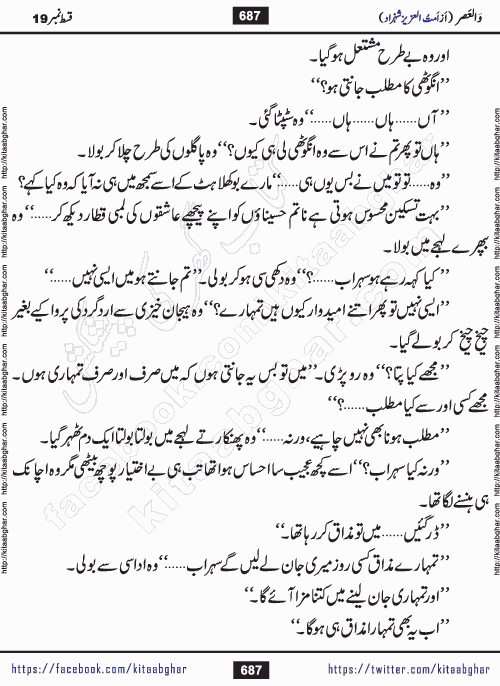 وَالعَصر (از اَمتُ العزیز شہزاد)
687
قسط نمبر 19
اور وہ بے طرح مشتعل ہوگیا۔
’’انگوٹھی کا مطلب جانتی ہو؟‘‘
’’آں...... ہاں...... ہاں......‘‘ وہ سٹپٹا گئی۔
’’ہاں تو پھر تم نے اس سے وہ انگوٹھی لی ہی کیوں؟‘‘ وہ پاگلوں کی طرح چلا کر بولا۔
’’وہ...... تو تو میں نے بس یوں ہی......‘‘ مارے بوکھلاہٹ کے اسے سمجھ میں ہی نہ آیا کہ وہ کیا کہے؟
’’بہت تسکین محسوس ہوتی ہے ناتم حسیناؤں کو اپنے پیچھے عاشقوں کی لمبی قطار دیکھ کر......‘‘ وہ
بپھرے لہجے میں بولا۔
’’کیا کہہ رہے ہو سہراب......؟‘‘ وہ دکھی سی ہو کر بولی۔ ’’تم جانتے ہو میں ایسی نہیں......‘‘
’’ایسی نہیں تو پھر اتنے امیدوار کیوں ہیں تمہارے؟‘‘ وہ ہیجان خیزی سے اردگرد کی پروا کیے بغیر
چیخ چیخ کر بولے گیا۔
’’مجھے کیا پتا؟‘‘ وہ رو پڑی۔ ’’میں تو بس یہ جانتی ہوں کہ میں صرف اور صرف تمہاری ہوں۔
مجھے کسی اور سے کیا مطلب......؟‘‘
’’مطلب ہونا بھی نہیں چاہیے، ورنہ......‘‘ وہ پھنکارتے لہجے میں بولتا بولتا ایک دم ٹھہر گیا۔
’’ورنہ کیا سہراب؟‘‘ اسے کچھ عجیب سا احساس ہوا تھا تب ہی بے اختیار پوچھ بیٹھی مگر وہ اچانک
ہی ہنسنے لگا تھا۔
’’ڈر گئیں...... میں تو مذاق کر رہا تھا۔‘‘
’’تمہارے مذاق کسی روز میری جان لے لیں گے سہراب......‘‘ وہ اداسی سے بولی۔
’’اور تمہاری جان لینے میں کتنا مزا آئے گا۔‘‘
’’اب یہ بھی تمہارا مذاق ہی ہوگا۔‘‘
https://facebook.com/kitaabghar
687
https://twitter.com/kitaabghar
http://kitaabghar.com